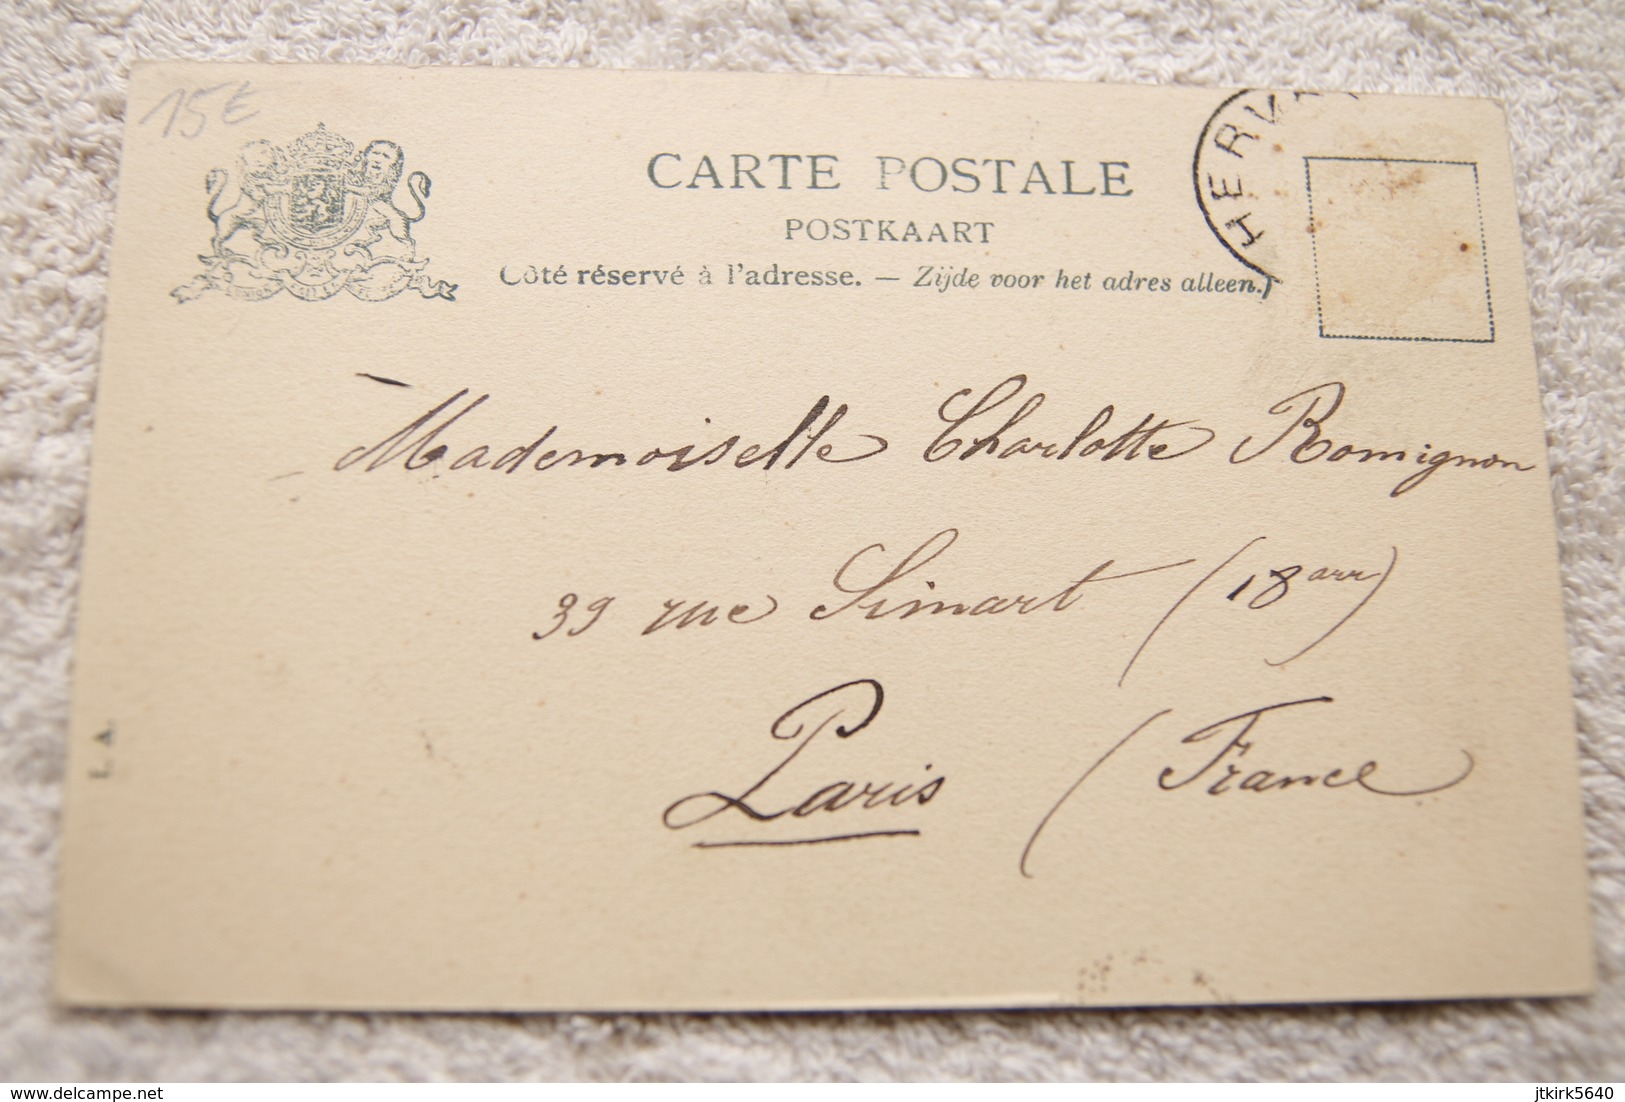 15€
CARTE POSTALE
POSTKAART
Côté réservé à l'adresse. — Zijde voor het adres alleen.
HERV
Mademoiselle Charlotte Romignon
39 rue Simart (18 arr)
Paris (France)
L. A.
www.delcampe.net
jtkirk5640